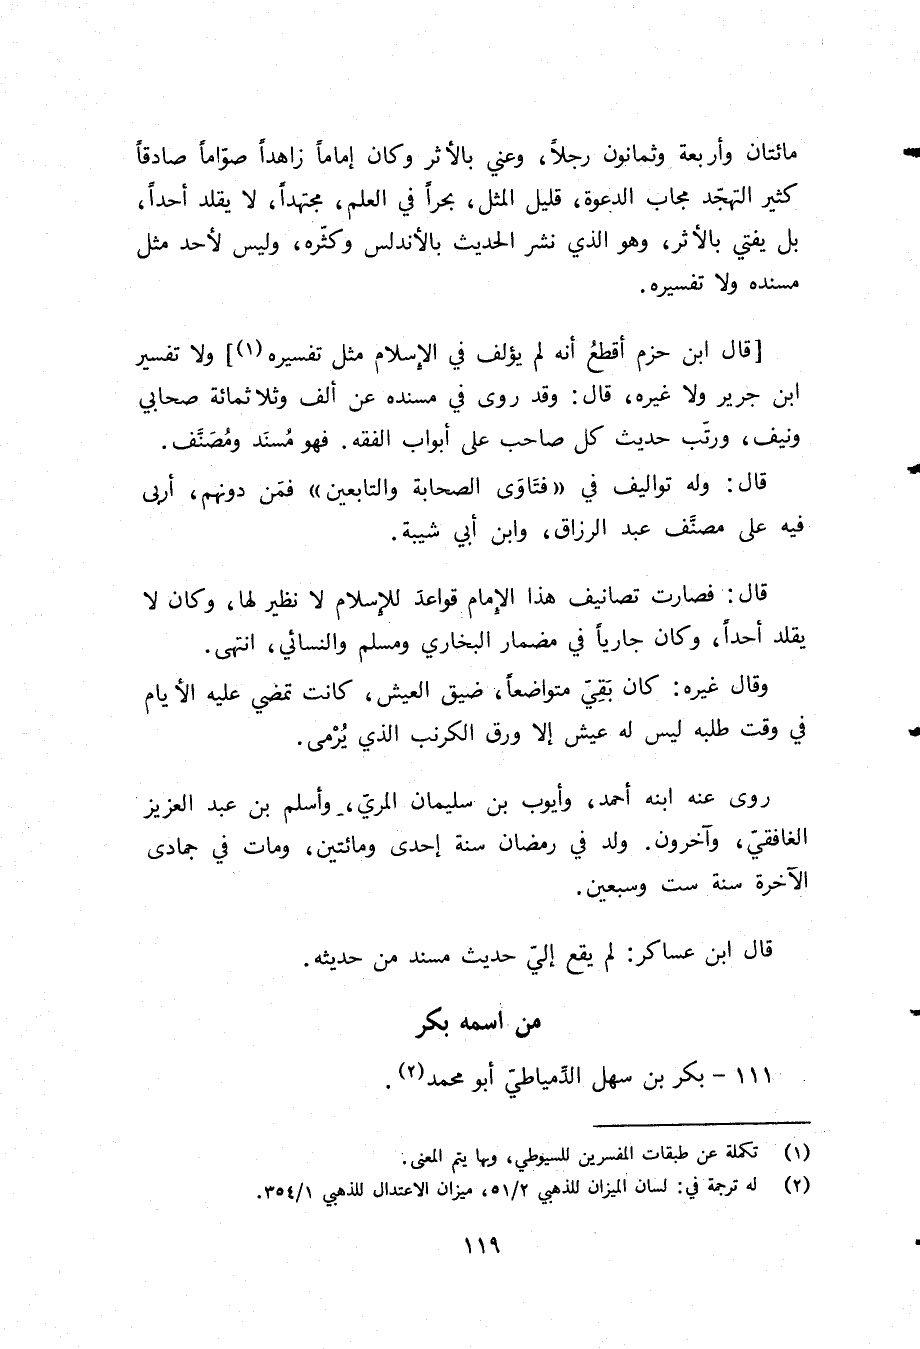 مائتان وأربعة وثمانون رجلاً، وعني بالأثر وكان إماماً زاهداً صوّاماً صادقاً
كثير التهجّد مجاب الدعوة، قليل المثل، بحراً في العلم، مجتهداً، لا يقلد أحداً،
بل يفتي بالأثر، وهو الذي نشر الحديث بالأندلس وكثّره، وليس لأحد مثل
مسنده ولا تفسيره.
[قال ابن حزم أقطعُ أنه لم يؤلف في الإسلام مثل تفسيره(١)] ولا تفسير
ابن جرير ولا غيره، قال: وقد روى في مسنده عن ألف وثلاثمائة صحابي
ونيف، ورتّب حديث كل صاحب على أبواب الفقه. فهو مُسنَد ومُصَنَّف.
قال: وله تواليف في «فتَاوَى الصحابة والتابعين» فمَن دونهم، أربى
فيه على مصنَّف عبد الرزاق، وابن أبي شيبة.
قال: فصارت تصانيف هذا الإمام قواعدَ للإسلام لا نظير لها، وكان لا
يقلد أحداً، وكان جارياً في مضمار البخاري ومسلم والنسائي، انتهى.
وقال غيره: كان بَقِيّ متواضعاً، ضيق العيش، كانت تمضي عليه الأيام
في وقت طلبه ليس له عيش إلا ورق الكرنب الذي يُرْمى.
روى عنه ابنه أحمد، وأيوب بن سليمان المريّ، وأسلم بن عبد العزيز
الغافقيّ، وآخرون. ولد في رمضان سنة إحدى ومائتين، ومات في جمادى
الآخرة سنة ست وسبعين.
قال ابن عساكر: لم يقع إليّ حديث مسند من حديثه.
من اسمه بكر
١١١ - بكر بن سهل الدِّمياطيّ أبو محمد(٢).
(١) تكملة عن طبقات المفسرين للسيوطي، وبها يتم المعنى.
(٢) له ترجمة في: لسان الميزان للذهبي ٥١/٢، ميزان الاعتدال للذهبي ٣٥٤/١.
١١٩